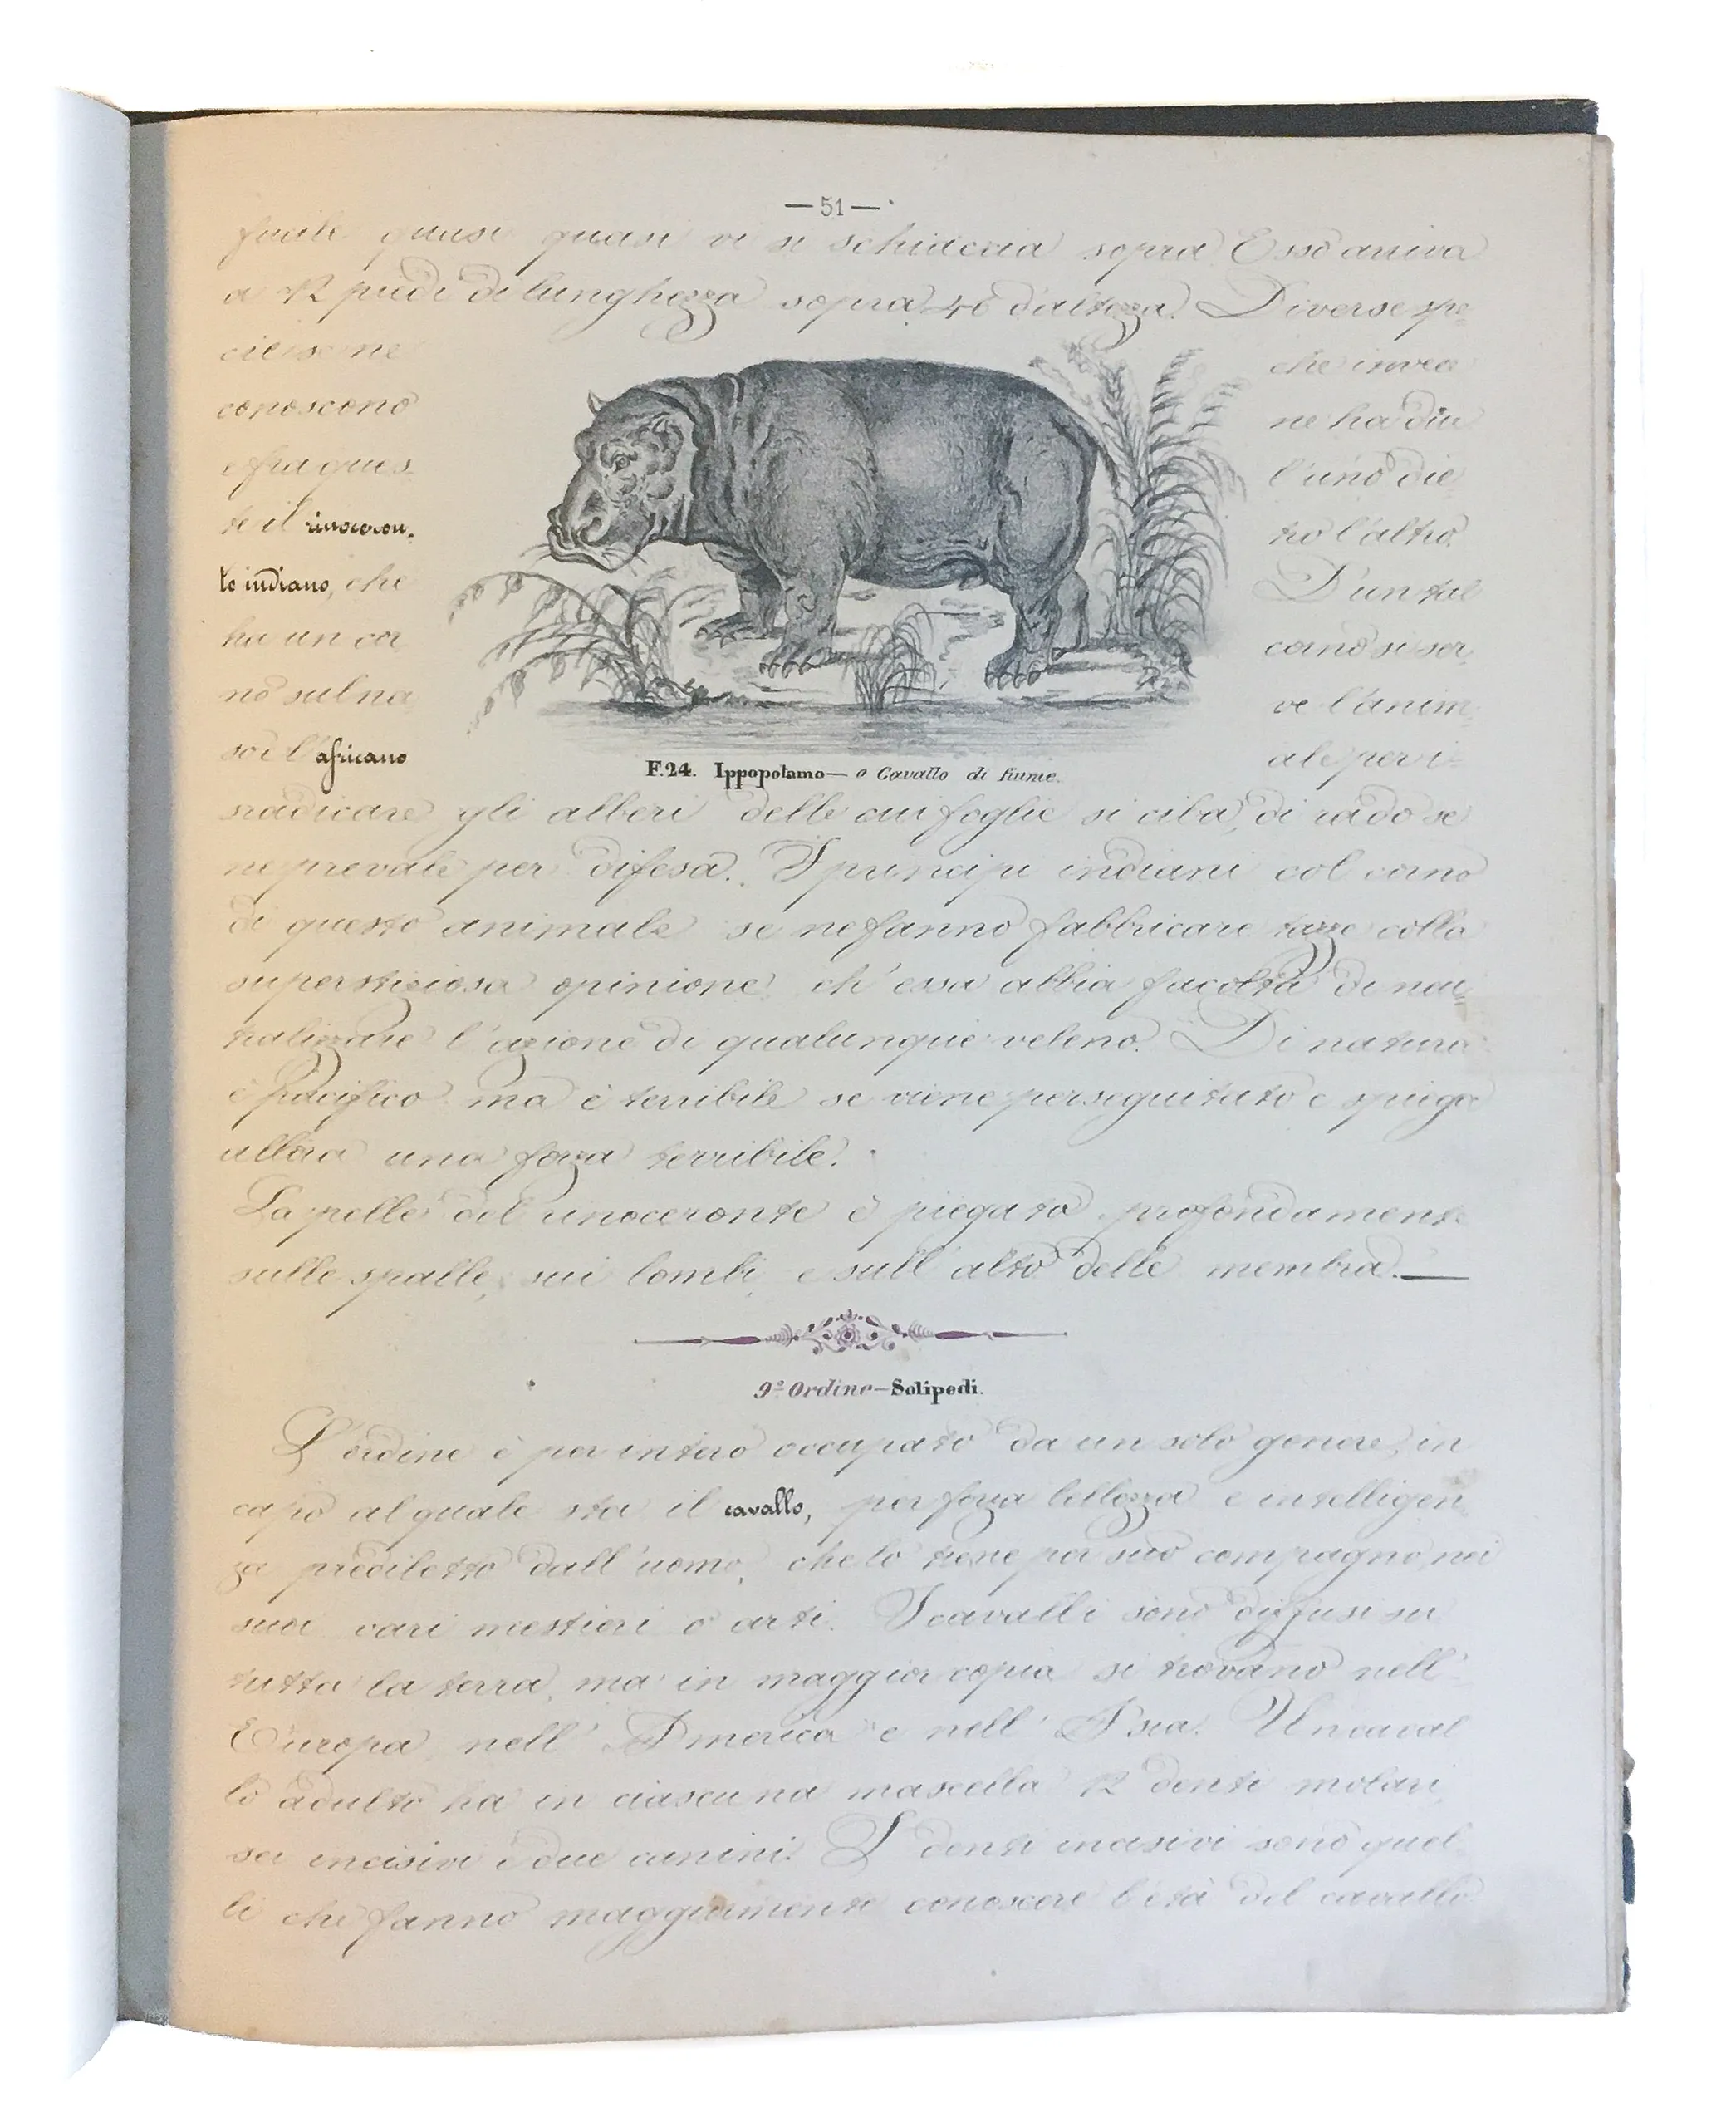 —51—
fucile quasi quasi vi si schiaccia sopra. Esso arriva
a 12 piedi di lunghezza sopra d'altezza. Diverse spe-
cie se ne
conoscono
e fra ques-
te il rinoceron-
te indiano, che
ha un cor
no sul na
so e l'africano
che invece
ne ha due
l'uno die
tro l'altro.
D'un tal
corno si ser-
ve l'anim-
ale per i-
F.24. Ippopotamo — o Cavallo di fiume.
sradicare gli alberi delle cui foglie si ciba, di rado se
ne prevale per difesa. I principi indiani col corno
di questo animale se ne fanno fabbricare tazze colla
superstiziosa opinione ch'essa abbia facoltà di neu-
tralizzare l'azione di qualunque veleno. Di natura
è pacifico ma è terribile se viene perseguitato e spiega
allora una forza terribile.
La pelle del rinoceronte è piegata profondamente
sulle spalle, sui lombi, e sull'alto delle membra. —
9º Ordine — Solipedi.
L'ordine è per intero occupato da un solo genere, in
capo al quale sta il cavallo, per forza bellezza e intelligen-
za prediletto dall'uomo, che lo tiene per suo compagno nei
suoi vari mestieri o arti. I cavalli sono diffusi su
tutta la terra, ma in maggior copia si trovano nell'
Europa, nell'America e nell'Asia. Un caval
lo adulto ha in ciascuna mascella 12 denti molari,
sei incisivi e due canini. I denti incisivi sono quel-
li che fanno maggiormente conoscere l'età del cavallo